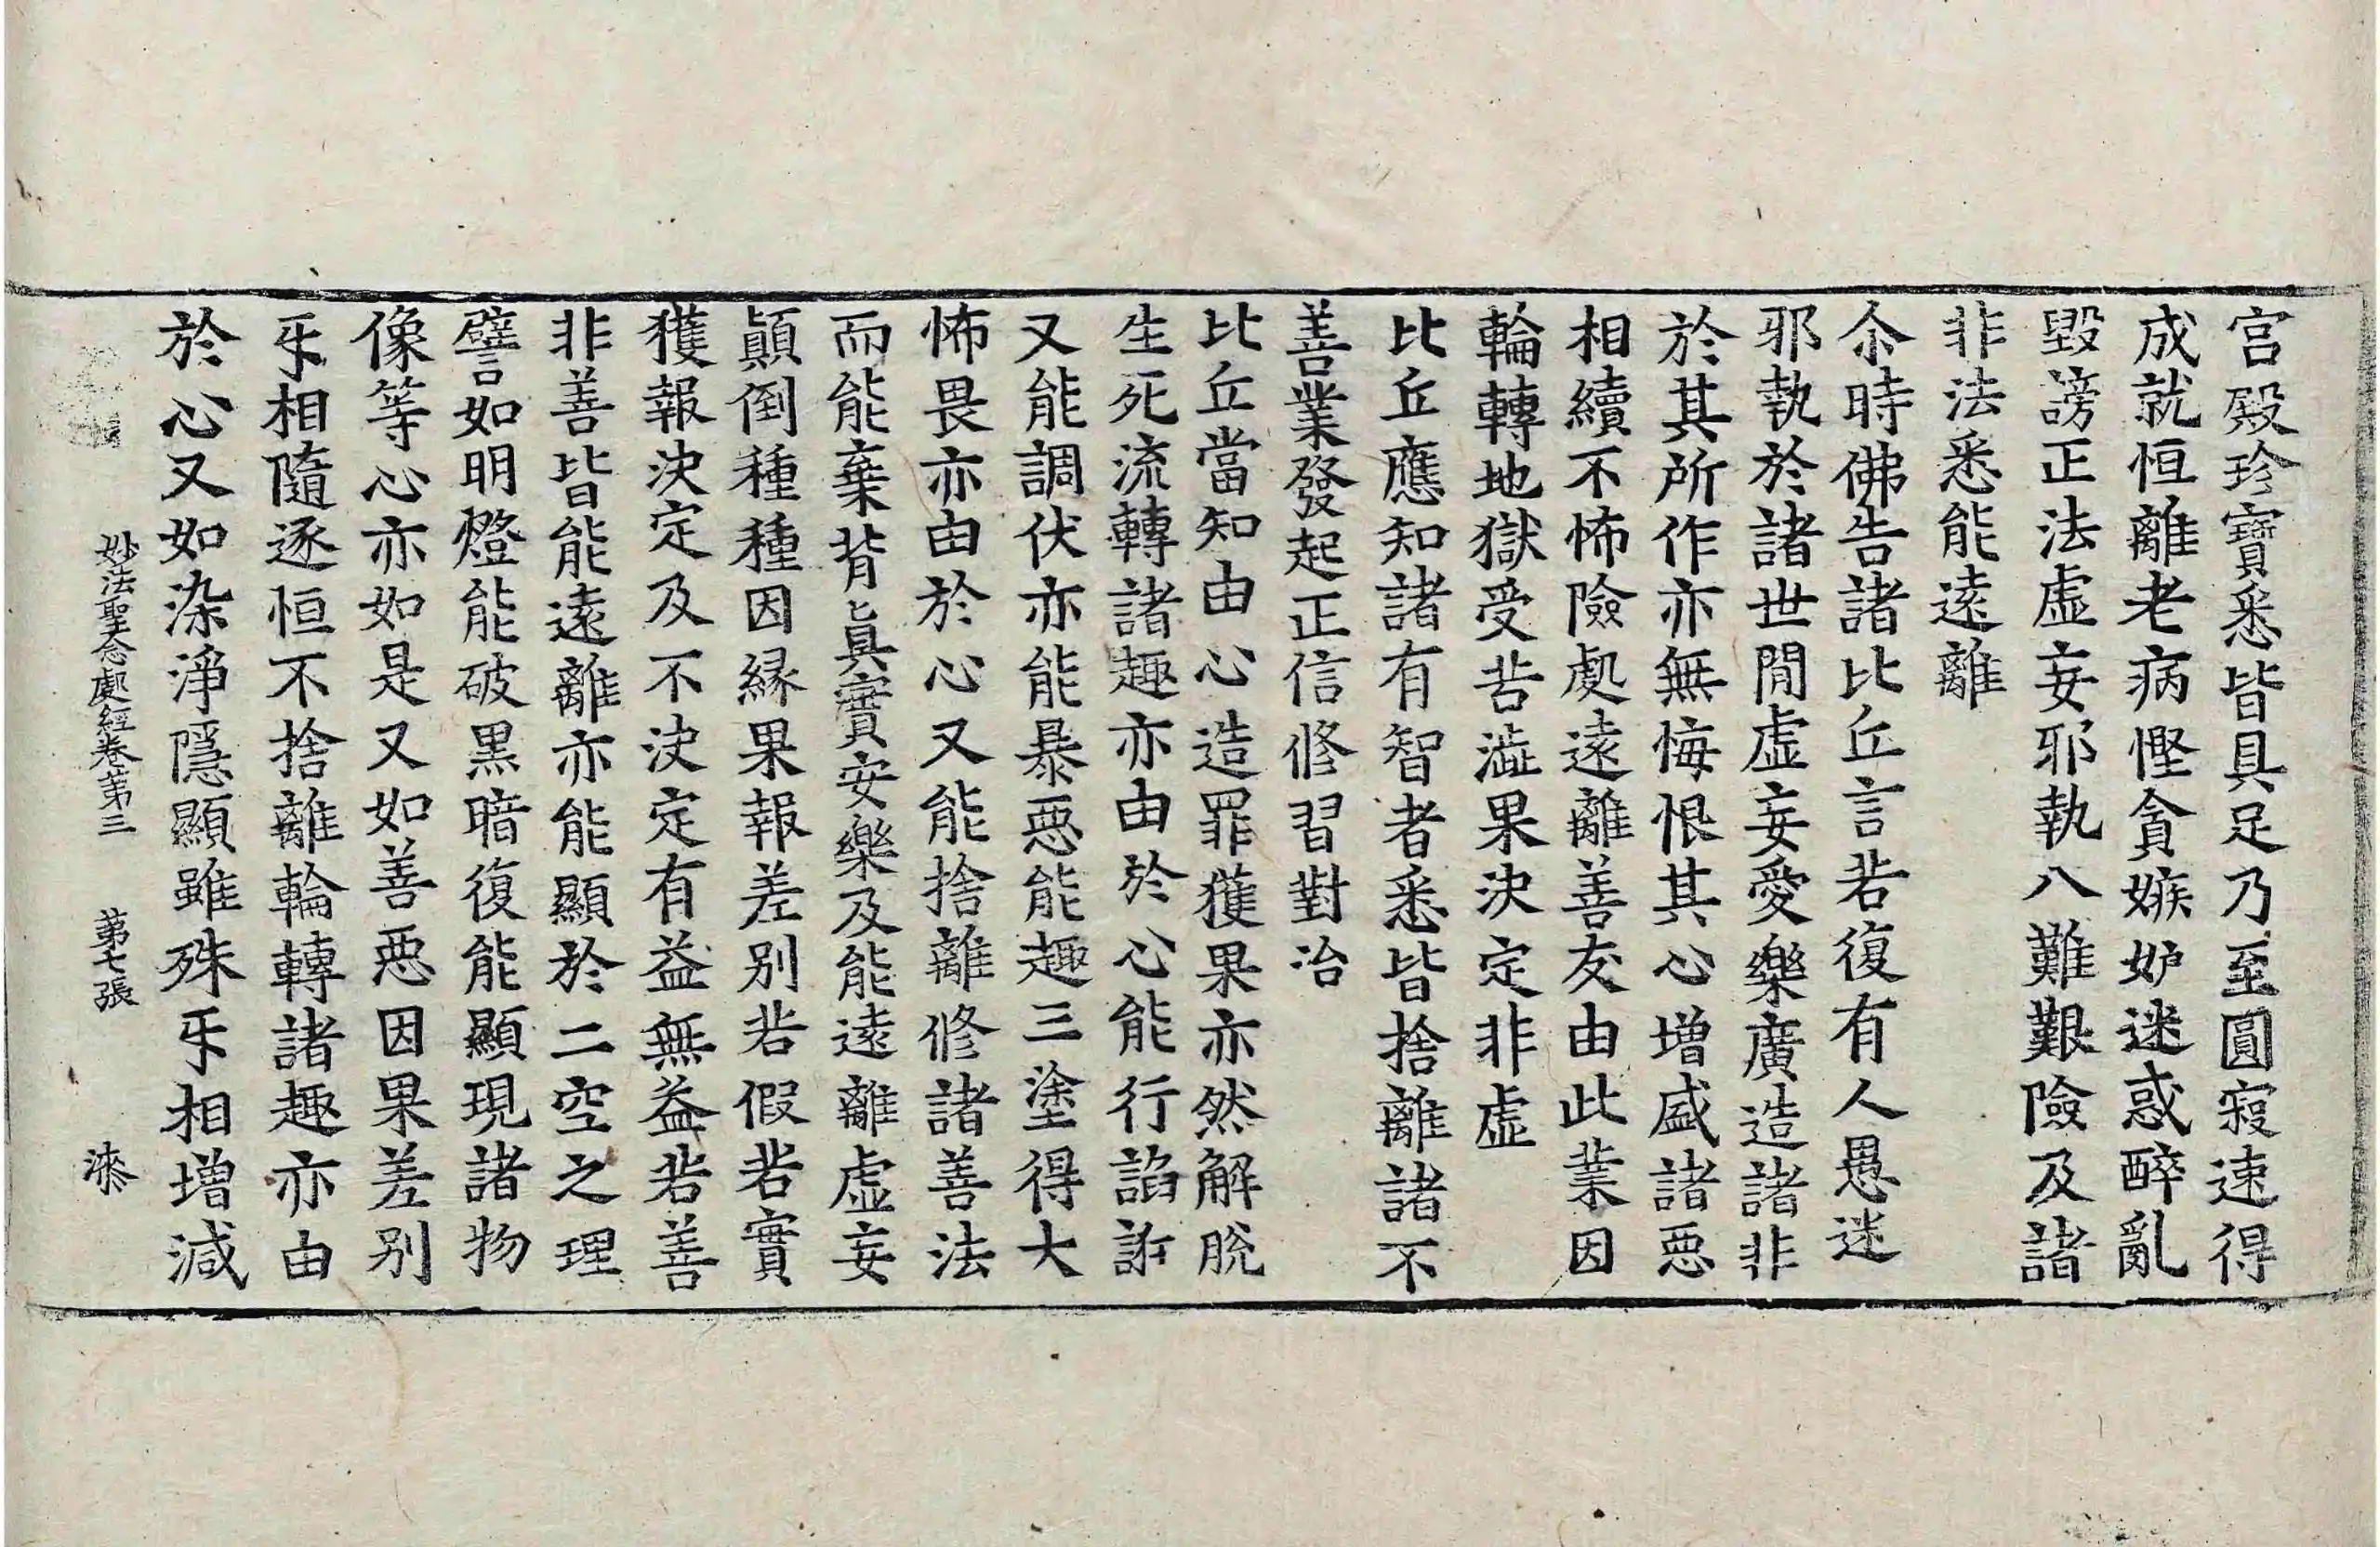 宮殿珍寶悉皆具足乃至圓寂速得
成就恒離老病慳貪嫉妒迷惑醉亂
毀謗正法虛妄邪執八難艱險及諸
非法悉能遠離
尒時佛告諸比丘言若復有人愚迷
邪執於諸世間虛妄愛樂廣造諸非
於其所作亦無悔恨其心增盛諸惡
相續不怖險處遠離善友由此業因
輪轉地獄受苦澁果決定非虛
比丘應知諸有智者悉皆捨離諸不
善業發起正信修習對治
比丘當知由心造罪獲果亦然解脫
生死流轉諸趣亦由於心能行諂詐
又能調伏亦能暴惡能趣三塗得大
怖畏亦由於心又能捨離修諸善法
而能棄背眞實安樂及能遠離虛妄
顚倒種種因緣果報差別若假若實
獲報決定及不決定有益無益若善
非善皆能遠離亦能顯於二空之理
譬如明燈能破黑暗復能顯現諸物
像等心亦如是又如善惡因果差別
乎相隨逐恒不捨離輪轉諸趣亦由
於心又如染淨隱顯雖殊乎相增減
妙法聖念處經卷第三 第七張 漆